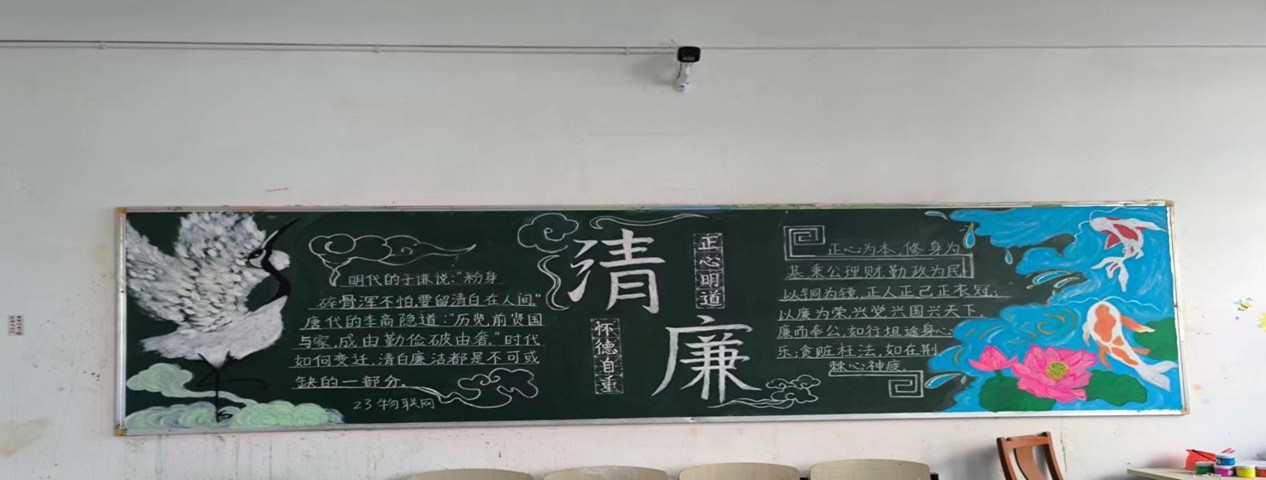 明代的于谦说:“粉身
碎骨浑不怕,要留清白在人间。”
唐代的李商隐道:“历览前贤国
与家,成由勤俭破由奢。”时代
如何变迁,清白廉洁都是不可或
缺的一部分。
23物联网
清
廉
正心明道
怀德自重
正心为本,修身为
基,秉公理财勤政为民
以铜为镜,正人正己正衣冠;
以廉为荣,兴党兴国兴天下。
廉而奉公,如行坦途身心
乐;贪赃枉法,如在荆
棘心神疲